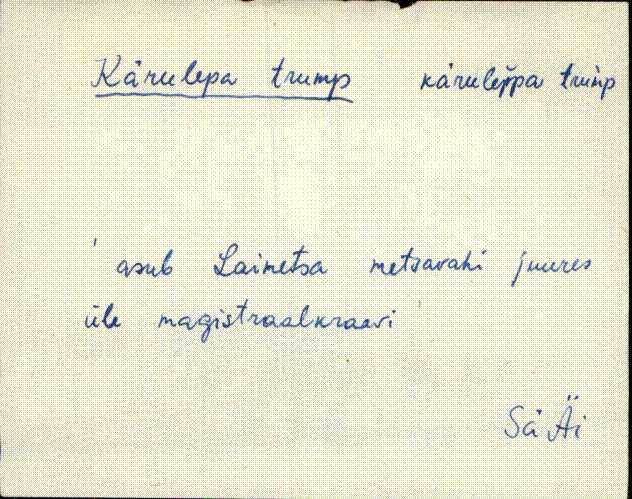 Kärulepa trump kärulep̆pa trum̀p
' asub Laimetsa metsavahi juures
üle magistraalkraavi
Sä Äi